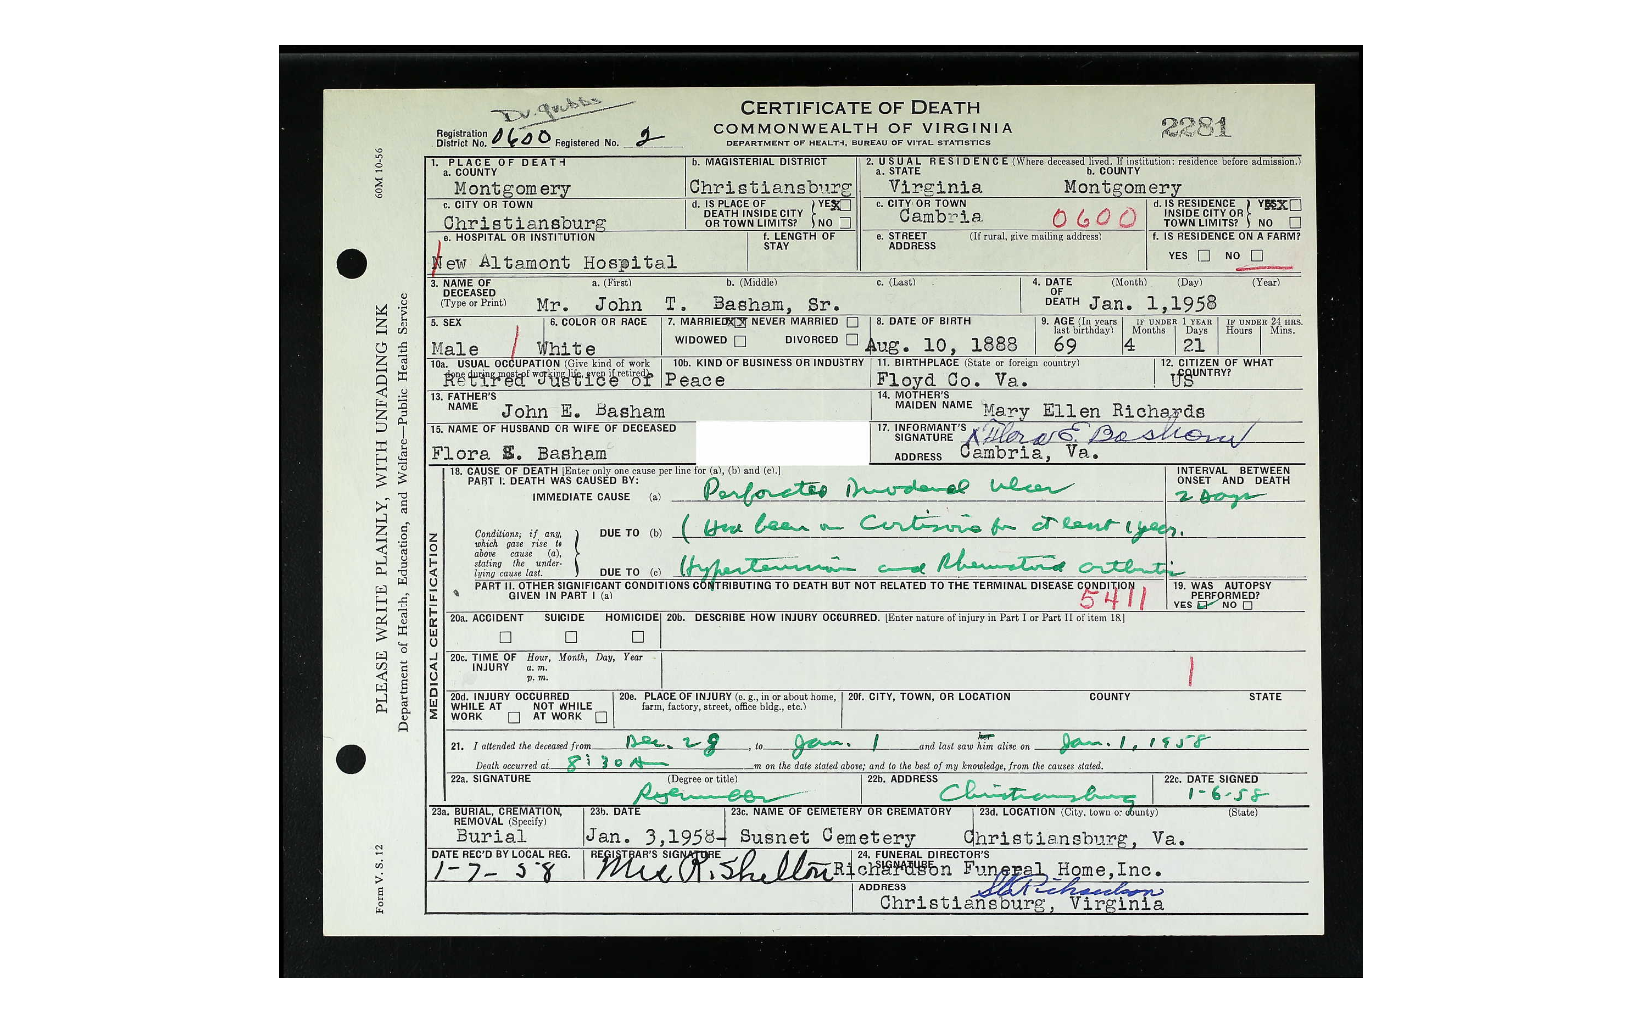 Dr. Grubbs
CERTIFICATE OF DEATH
COMMONWEALTH OF VIRGINIA
DEPARTMENT OF HEALTH, BUREAU OF VITAL STATISTICS
2281
Registration District No. 0600 Registered No. 2
60M 10-56
PLEASE WRITE PLAINLY, WITH UNFADING INK
Department of Health, Education, and Welfare—Public Health Service
Form V. S. 12
1. PLACE OF DEATH
a. COUNTY
Montgomery
b. MAGISTERIAL DISTRICT
Christiansburg
2. USUAL RESIDENCE (Where deceased lived. If institution: residence before admission.)
a. STATE b. COUNTY
Virginia Montgomery
c. CITY OR TOWN
Christiansburg
d. IS PLACE OF DEATH INSIDE CITY OR TOWN LIMITS? YES X NO
c. CITY OR TOWN
Cambria 0600
d. IS RESIDENCE INSIDE CITY OR TOWN LIMITS? YES X NO
e. HOSPITAL OR INSTITUTION
New Altamont Hospital
f. LENGTH OF STAY
e. STREET ADDRESS (If rural, give mailing address)
f. IS RESIDENCE ON A FARM?
YES NO
3. NAME OF DECEASED (Type or Print)
a. (First) b. (Middle) c. (Last)
Mr. John T. Basham, Sr.
4. DATE OF DEATH (Month) (Day) (Year)
Jan. 1,1958
5. SEX
Male
6. COLOR OR RACE
White
7. MARRIED XX NEVER MARRIED
WIDOWED DIVORCED
8. DATE OF BIRTH
Aug. 10, 1888
9. AGE (In years last birthday)
69
IF UNDER 1 YEAR
Months Days
4 21
IF UNDER 24 HRS.
Hours Mins.
10a. USUAL OCCUPATION (Give kind of work done during most of working life, even if retired)
Retired Justice of
10b. KIND OF BUSINESS OR INDUSTRY
Peace
11. BIRTHPLACE (State or foreign country)
Floyd Co. Va.
12. CITIZEN OF WHAT COUNTRY?
US
13. FATHER'S NAME
John E. Basham
14. MOTHER'S MAIDEN NAME
Mary Ellen Richards
15. NAME OF HUSBAND OR WIFE OF DECEASED
Flora E. Basham
17. INFORMANT'S SIGNATURE
X Flora E. Basham
ADDRESS Cambria, Va.
MEDICAL CERTIFICATION
18. CAUSE OF DEATH [Enter only one cause per line for (a), (b) and (c).]
PART I. DEATH WAS CAUSED BY:
IMMEDIATE CAUSE (a) Perforated Duodenal Ulcer
INTERVAL BETWEEN ONSET AND DEATH
2 Days
Conditions, if any, which gave rise to above cause (a), stating the underlying cause last.
DUE TO (b) (Has been on Cortisone for at least 1 year.
DUE TO (c) (Hypertension and Rheumatoid arthritis
PART II. OTHER SIGNIFICANT CONDITIONS CONTRIBUTING TO DEATH BUT NOT RELATED TO THE TERMINAL DISEASE CONDITION GIVEN IN PART I (a)
5411
19. WAS AUTOPSY PERFORMED?
YES NO
20a. ACCIDENT SUICIDE HOMICIDE
20b. DESCRIBE HOW INJURY OCCURRED. [Enter nature of injury in Part I or Part II of item 18]
20c. TIME OF INJURY Hour, Month, Day, Year
a. m.
p. m.
20d. INJURY OCCURRED
WHILE AT WORK NOT WHILE AT WORK
20e. PLACE OF INJURY (e. g., in or about home, farm, factory, street, office bldg., etc.)
20f. CITY, TOWN, OR LOCATION COUNTY STATE
21. I attended the deceased from Dec. 29, to Jan. 1 and last saw him her alive on Jan. 1, 1958
Death occurred at 8:30 A m on the date stated above; and to the best of my knowledge, from the causes stated.
22a. SIGNATURE (Degree or title)
22b. ADDRESS
Christiansburg
22c. DATE SIGNED
1-6-58
23a. BURIAL, CREMATION, REMOVAL (Specify)
Burial
23b. DATE
Jan. 3,1958-
23c. NAME OF CEMETERY OR CREMATORY
Susnet Cemetery
23d. LOCATION (City, town or county) (State)
Christiansburg, Va.
DATE REC'D BY LOCAL REG.
1-7-58
REGISTRAR'S SIGNATURE
Mrs R. Shelton
24. FUNERAL DIRECTOR'S SIGNATURE
Richardson Funeral Home,Inc.
Richardson
ADDRESS
Christiansburg, Virginia